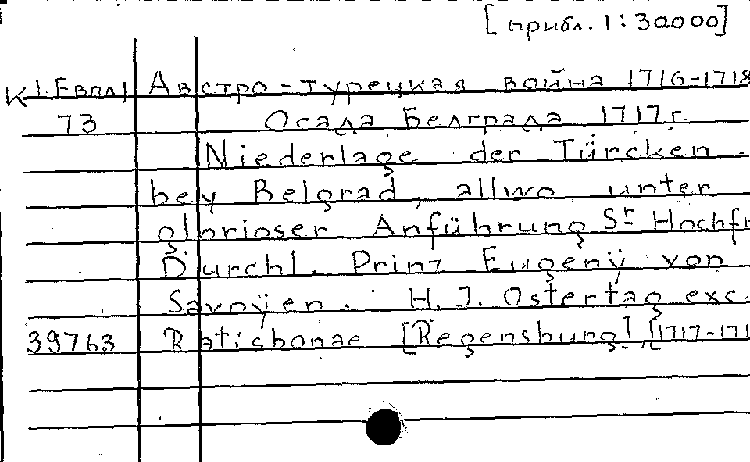 [прибл. 1:30000]
К 1-Евпл1 Австро-турецкая война 1716-1718
73 Осада Белграда 1717г.
Niederlage der Türcken
bey Belgrad, allwo unter
glorioser Anführung Sr Hochfr
Durchl. Prinz Eugenÿ von
Savoÿen. H.J. Ostertag exc.
39763 Ratisbonae [Regensburg] [1717-171